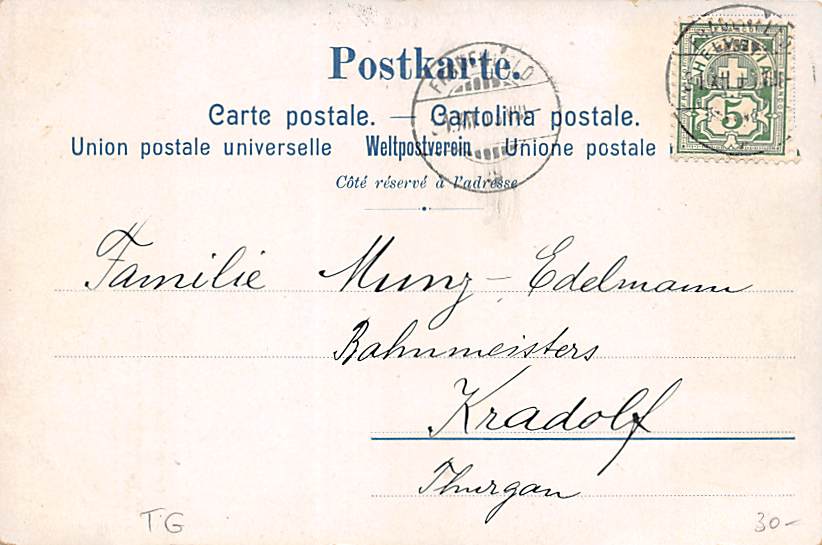 Postkarte.
Carte postale. — Cartolina postale.
Union postale universelle Weltpostverein Unione postale
Côté réservé à l'adresse
HELVETIA
5
Familie Munz-Edelmann
Bahnmeisters
Kradolf
Thurgau
TG
30-